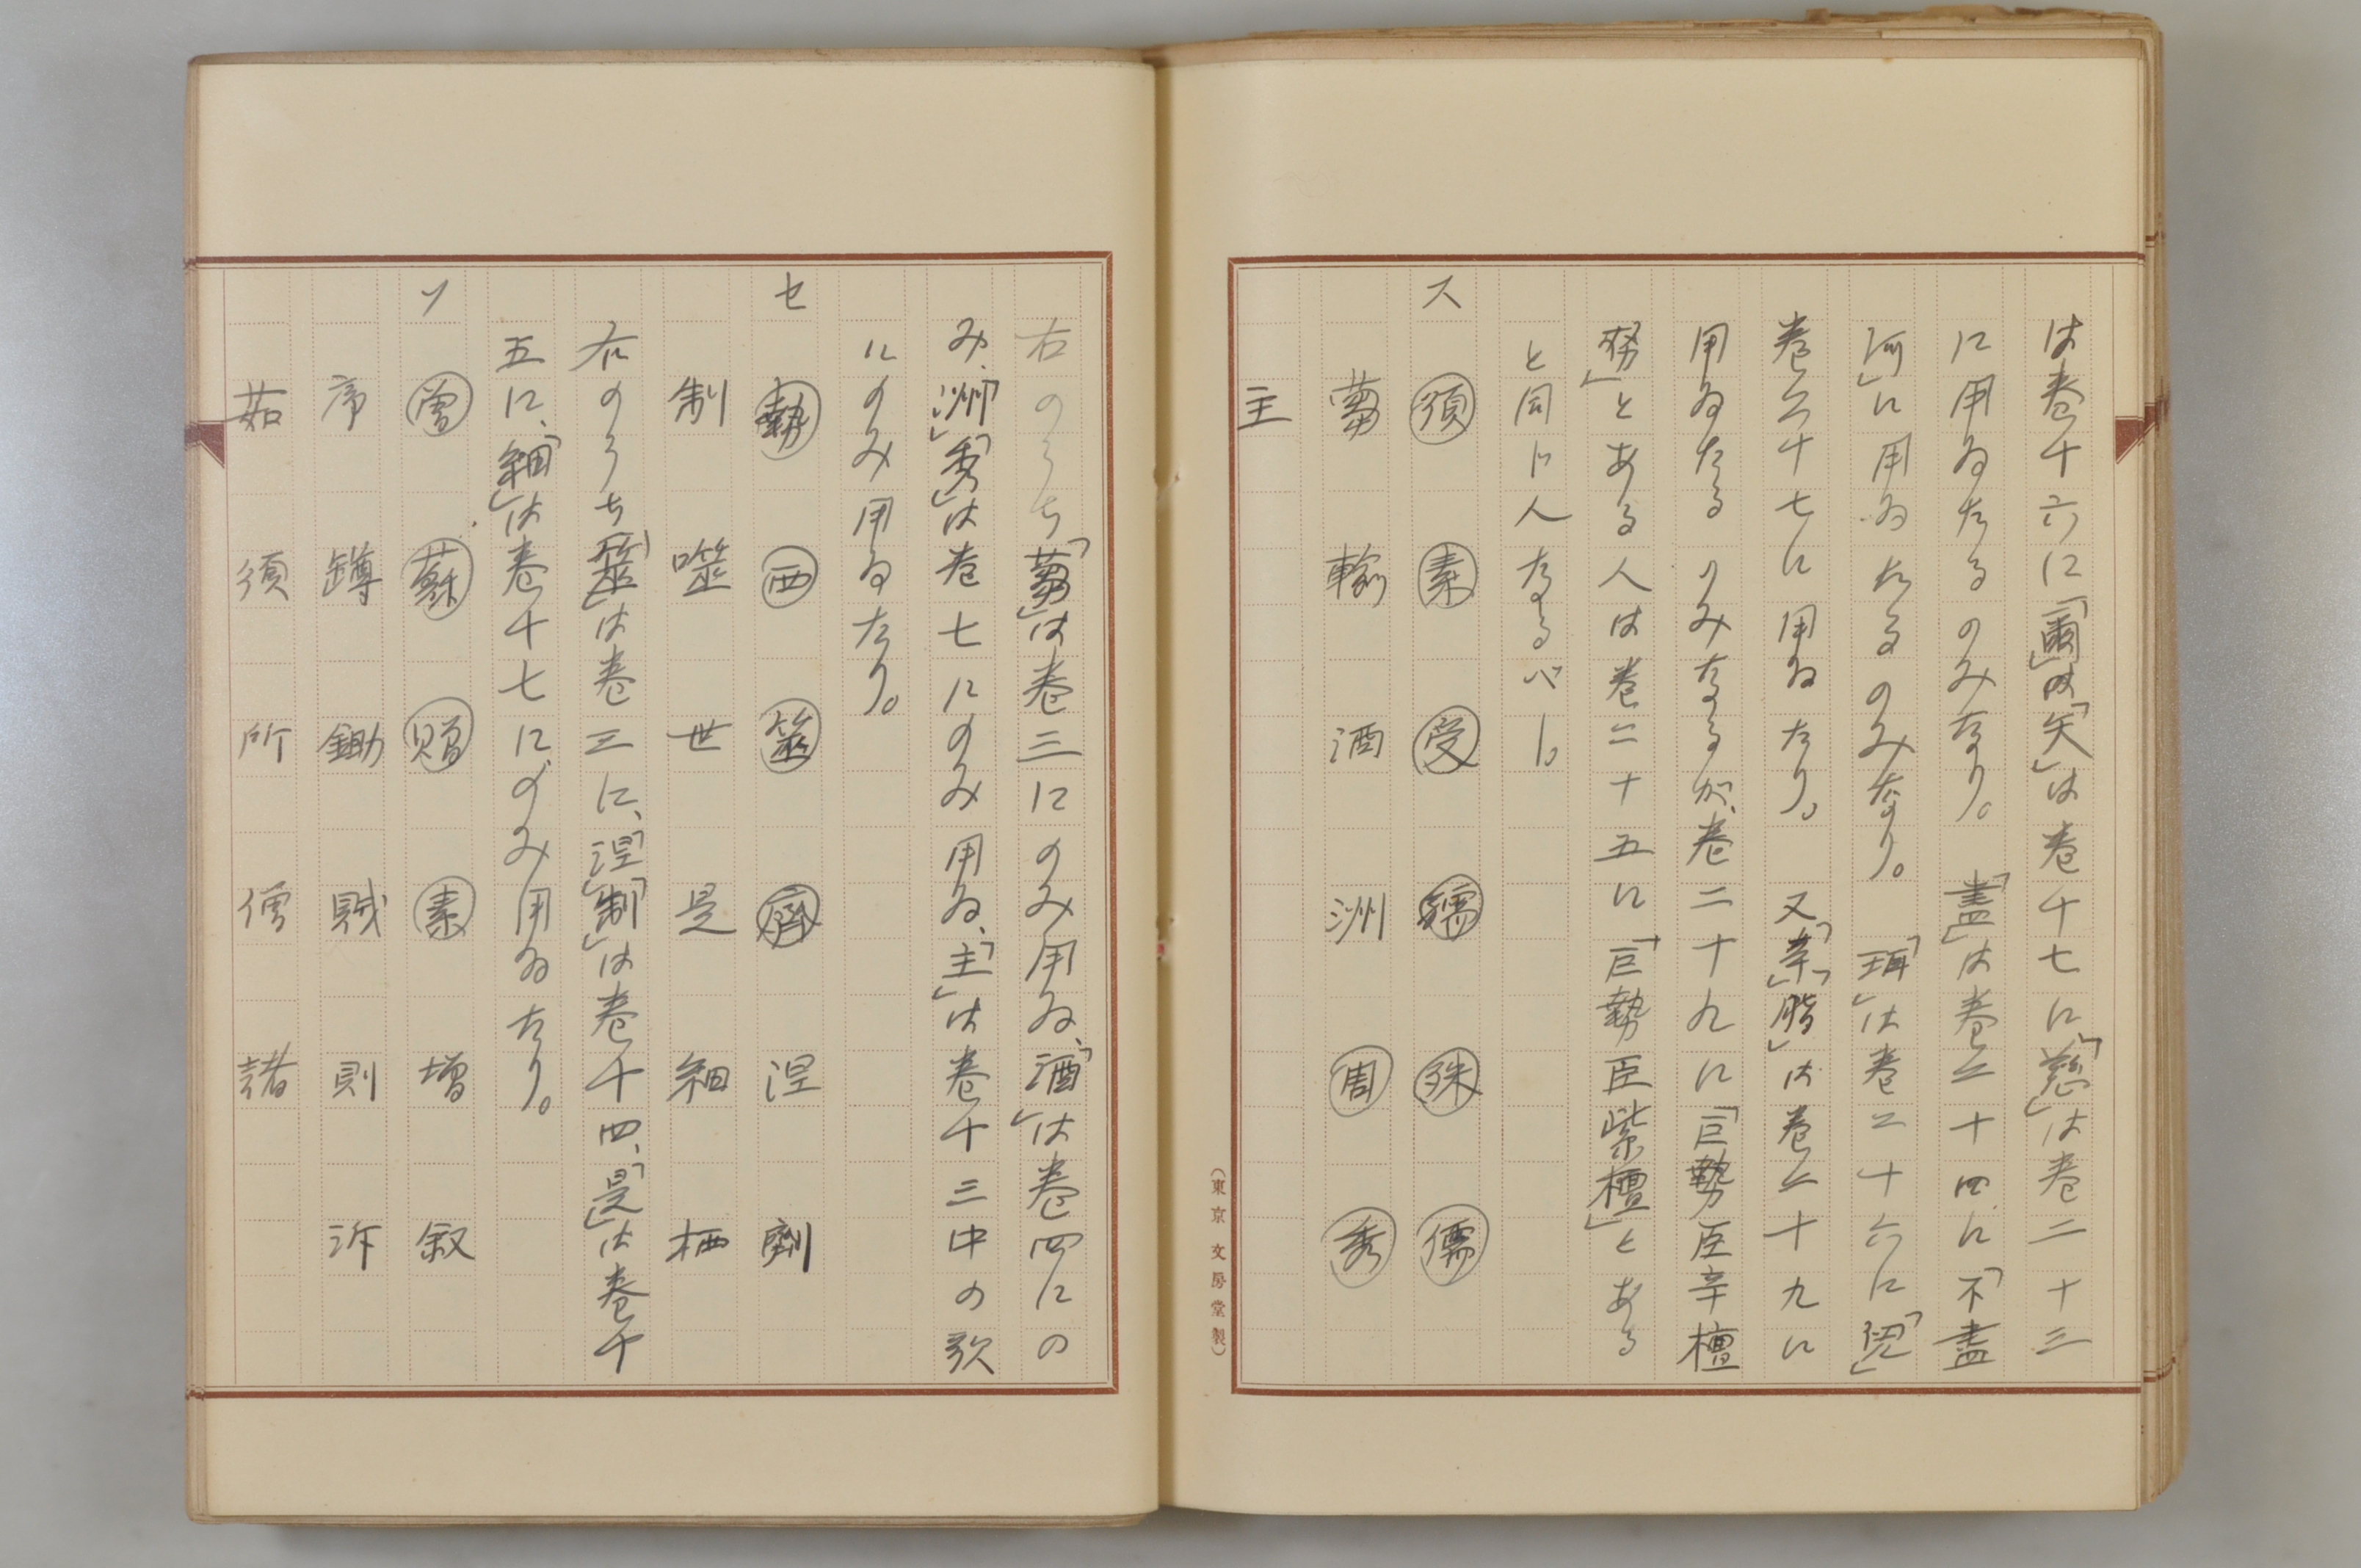 は巻十六に「璽」は「矢」は巻十七に「慈」は巻二十三
に用ゐたるのみなり。「盡」は巻二十四に「不盡
河」に用ゐたるのみなり。「珥」は巻二十六に「 」
巻二十七に用ゐたり。又「辛」「脂」は巻二十九に
用ゐたるのみなるが、巻二十九に「巨勢臣辛檀
努」とある人は巻二十五に「巨勢臣紫檀」とある
と同じ人なるべし。
ス 須 素 受 孺 殊 儒
蒭 輸 酒 洲 周 秀
主
(東京 文房堂製)
右のうち「蒭」は巻三にのみ用ゐ、「酒」は巻四にの
み、「洲」「秀」は巻七にのみ用ゐ、「主」は巻十三中の歌
にのみ用ゐたり。
セ 勢 西 筮 齊 涅 劑
制 噬 世 是 細 栖
右のうち「筮」は巻三に、「涅」「制」は巻十四、「是」は巻十
五に、「細」は巻十七にのみ用ゐたり。
ソ 曾 蘇 贈 素 増 叙
序 鐏 鋤 賊 則 泝
茹 須 所 僧 諸